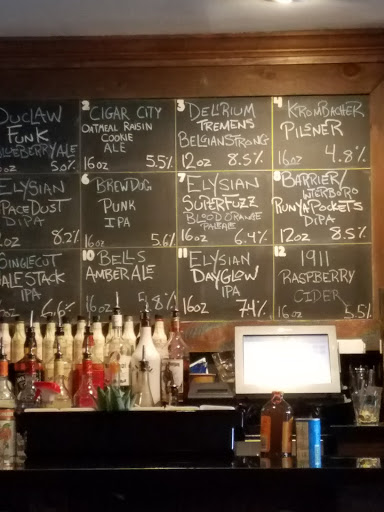 DUCLAW
FUNK
BLUEBERRY ALE
5.0%
2 CIGAR CITY
OATMEAL RAISIN
COOKIE
ALE
16oz 5.5%
3 DELIRIUM
TREMENS
BELGIAN STRONG
12oz 8.5%
4 KROMBACHER
PILSNER
16oz 4.8%
ELYSIAN
SPACE DUST
DIPA
8.2%
6 BREWDOG
PUNK
IPA
16oz 5.6%
7 ELYSIAN
SUPERFUZZ
BLOOD ORANGE
PALE ALE
16oz 6.4%
8 BARRIER/
INTERBORO
RUN YA POCKETS
DIPA
12oz 8.5%
SINGLECUT
HALFSTACK
IPA
6.6%
10 BELLS
AMBER ALE
16oz 5.8%
11 ELYSIAN
DAYGLOW
IPA
16oz 7.4%
12 1911
RASPBERRY
CIDER
16oz 5.5%